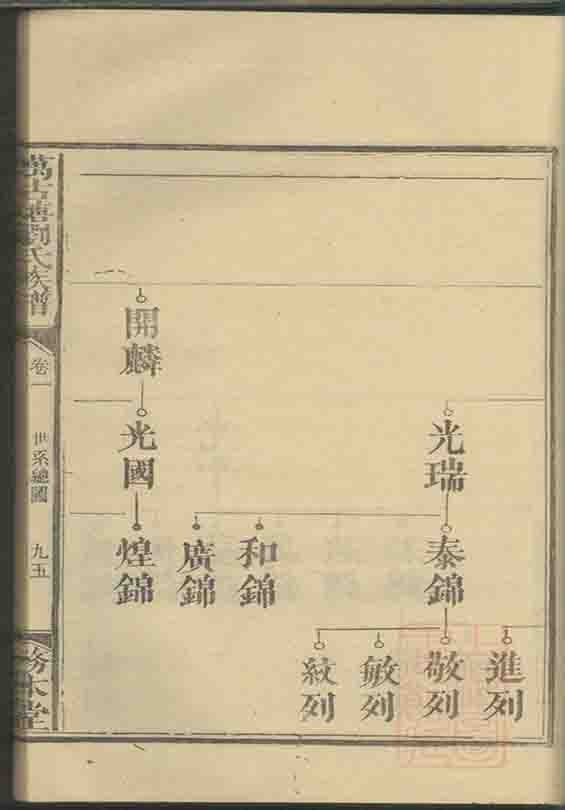 光瑞
泰錦
和錦
廣錦
進列
敬列
敏列
紋列
開麟
光國
煌錦
劉氏族譜
卷一
世系總圖
九五
務本堂